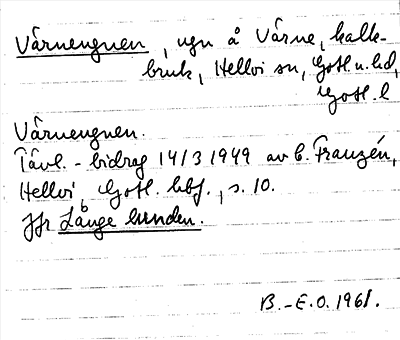 Värneugnen, ugn å Värne, kalk-
bruk, Hellvi sn, Gotl. n. hd,
Gotl. l
Värneugnen.
Tävl.-bidrag 14/3 1949 av C. Franzén,
Hellvi, Gotl. hbf., s. 10.
Jfr Långe hunden.
B.-E.O. 1961.